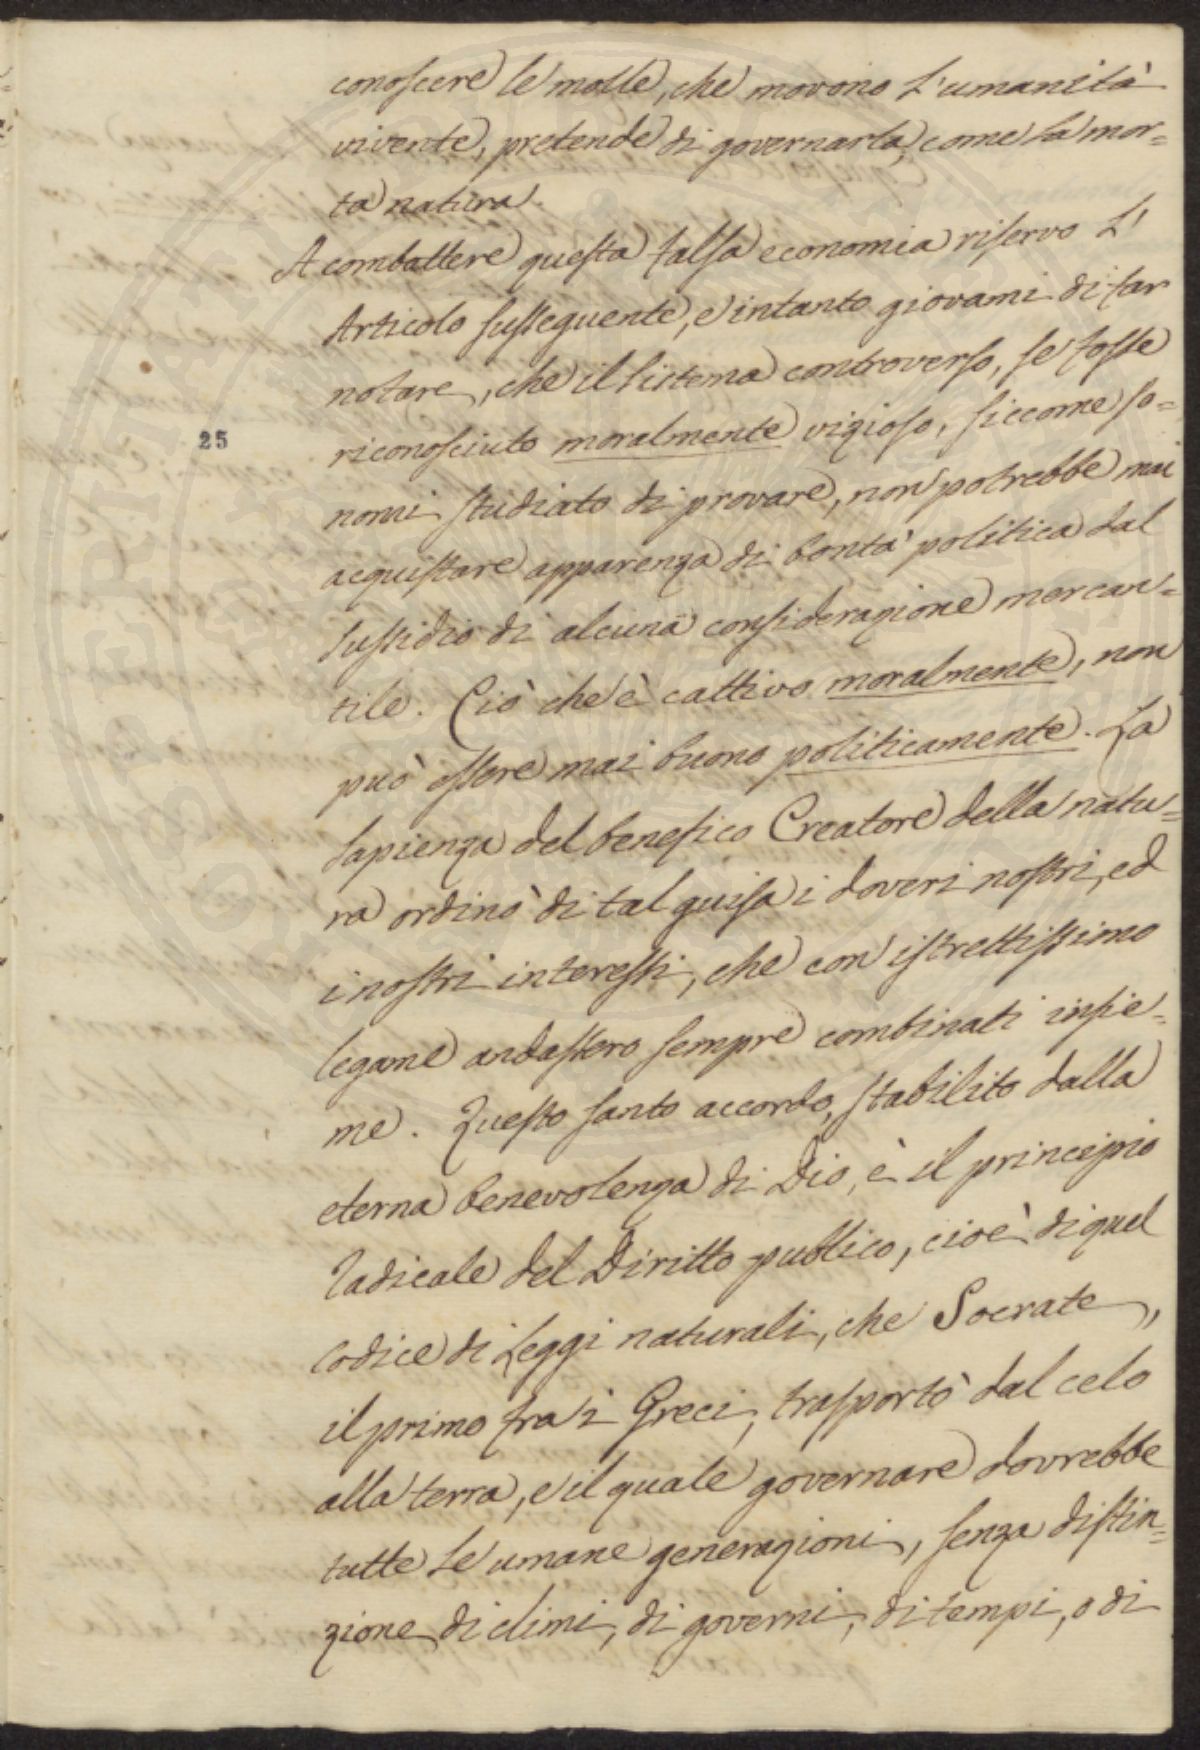 conoscere le molle, che movono l'umanità
vivente, pretende di governarla, come la mor=
ta natura.
A combattere questa falsa economia riservo l'
Articolo susseguente, e intanto giovami di far
notare, che il sistema controverso, se fosse
25
riconosciuto moralmente vizioso, siccome so=
nomi studiato di provare, non potrebbe mai
acquistare apparenza di bontà politica dal
sussidio di alcuna considerazione mercan=
tile. Ciò che è cattivo moralmente, non
può essere mai buono politicamente. La
sapienza del benefico Creatore della natu=
ra ordinò di tal guisa i doveri nostri, ed
i nostri interessi, che con istrettissimo
legame andassero sempre combinati insie=
me. Questo santo accordo, stabilito dalla
eterna benevolenza di Dio, è il principio
radicale del Diritto publico, cioè di quel
Codice di Leggi naturali, che Socrate,
il primo fra i Greci, trasportò dal celo
alla terra, e il quale governare dovrebbe
tutte le umane generazioni, senza distin=
zione di climi, di governi, di tempi, o di